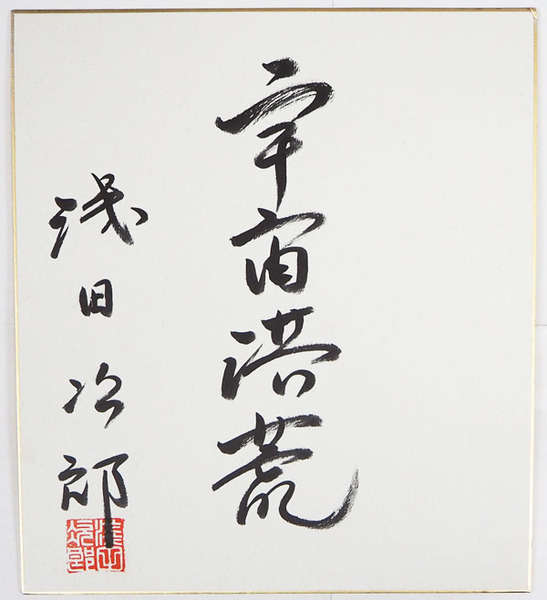 宇宙洪荒
浅田次郎